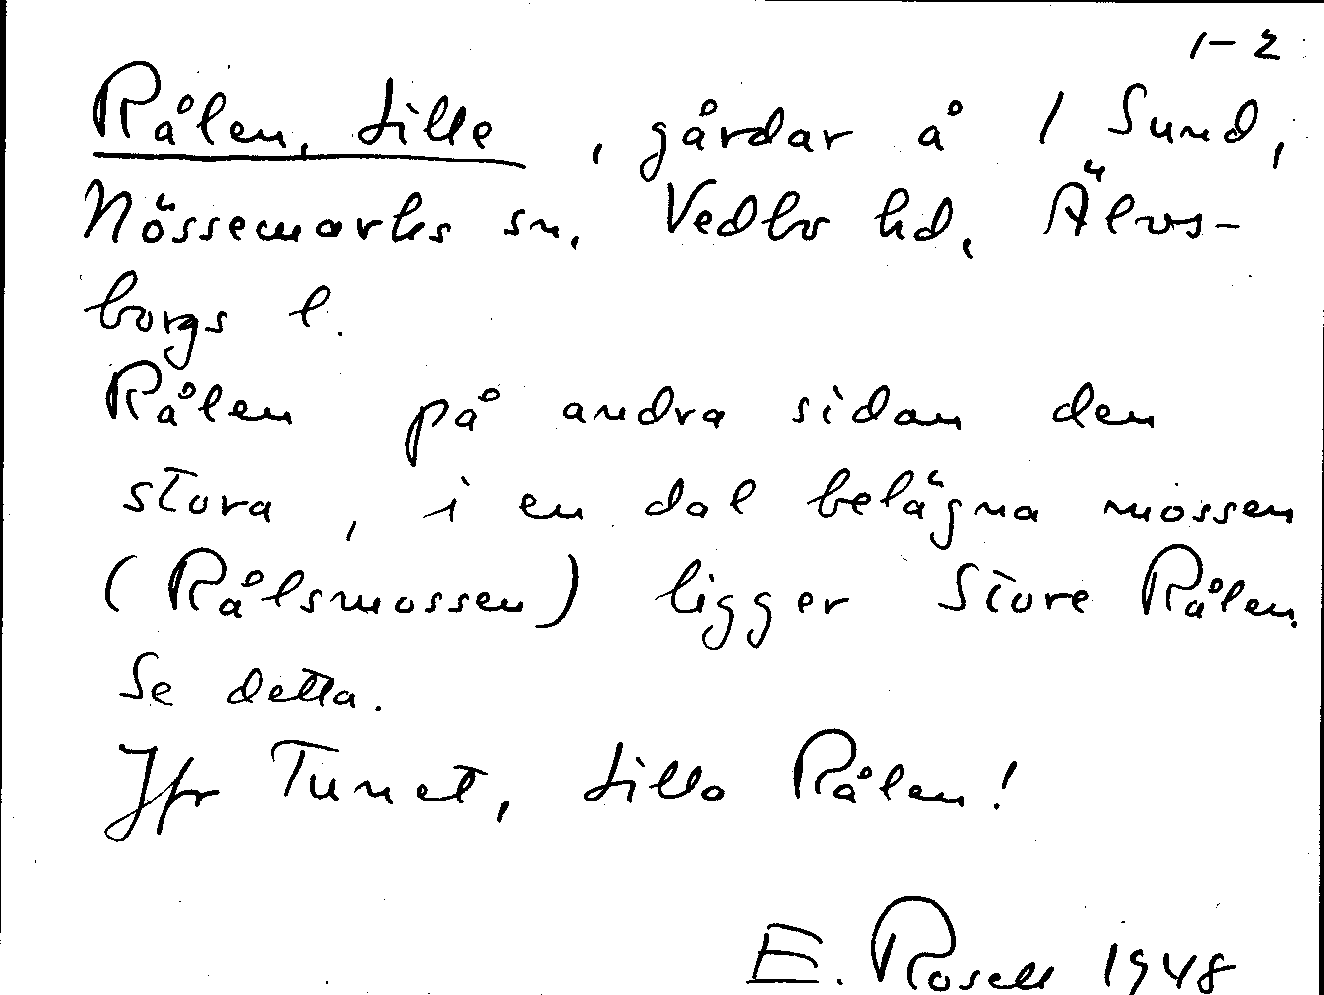 1-2
Rålen, Lille, gårdar å 1 Sund,
Nössemarks sn. Vedbo hd. Älvs-
borgs l.
Rålen på andra sidan den
stora, i en dal belägna mossen
(Rålsmossen) ligger Store Rålen.
Se detta.
Jfr Tunet, Lilla Rålen!
E. Rosell 1948